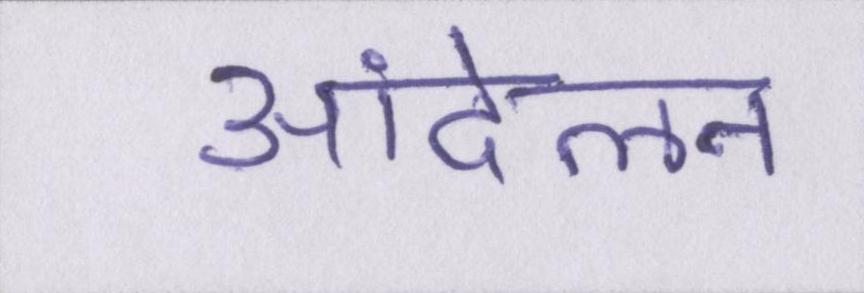 आंदेलन